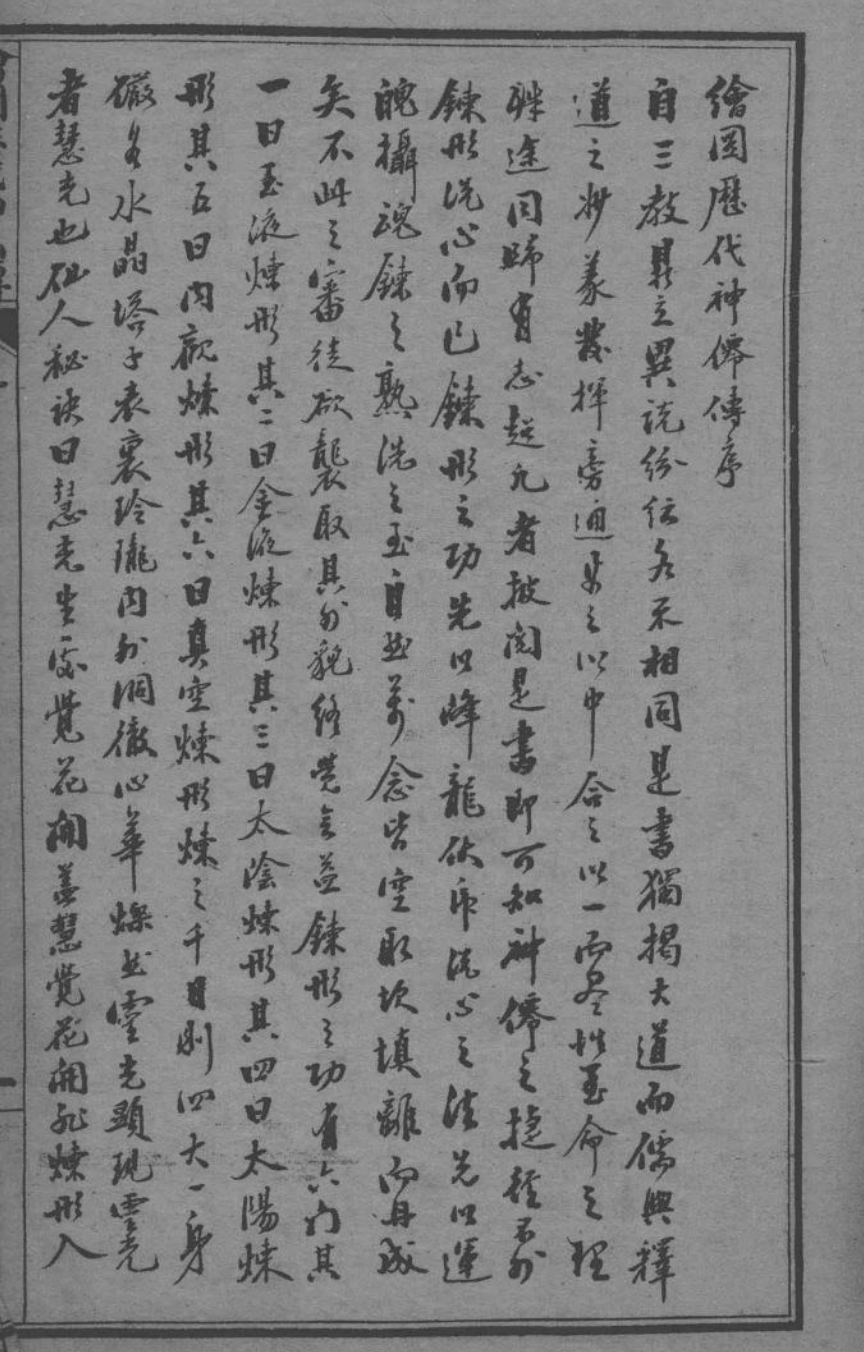 繪圖歷代神僊傳序
自三教鼎立異說紛紜各不相同是書獨揭大道而儒與釋
道之妙義發揮旁通貫之以中合之以一而盡性至命之理
殊途同歸有志超凡者披閱是書即可知神僊之捷徑不外
鍊形洗心而已鍊形之功先以降龍伏虎洗心之法先以運
魄攝魂鍊之熟洗之至自然萬念皆空取坎填離而丹成
矣不此之審徒欲襲取其外貌終覺無益鍊形之功有六門其
一曰玉液煉形其二曰金液煉形其三曰太陰煉形其四曰太陽煉
形其五曰內觀煉形其六曰真空煉形煉之千日則四大一身
儼若水晶塔子表裏玲瓏內外洞徹心華燦然靈光顯現靈光
者慧光也仙人秘訣曰慧光生處覺花開蓋慧覺花開非煉形入